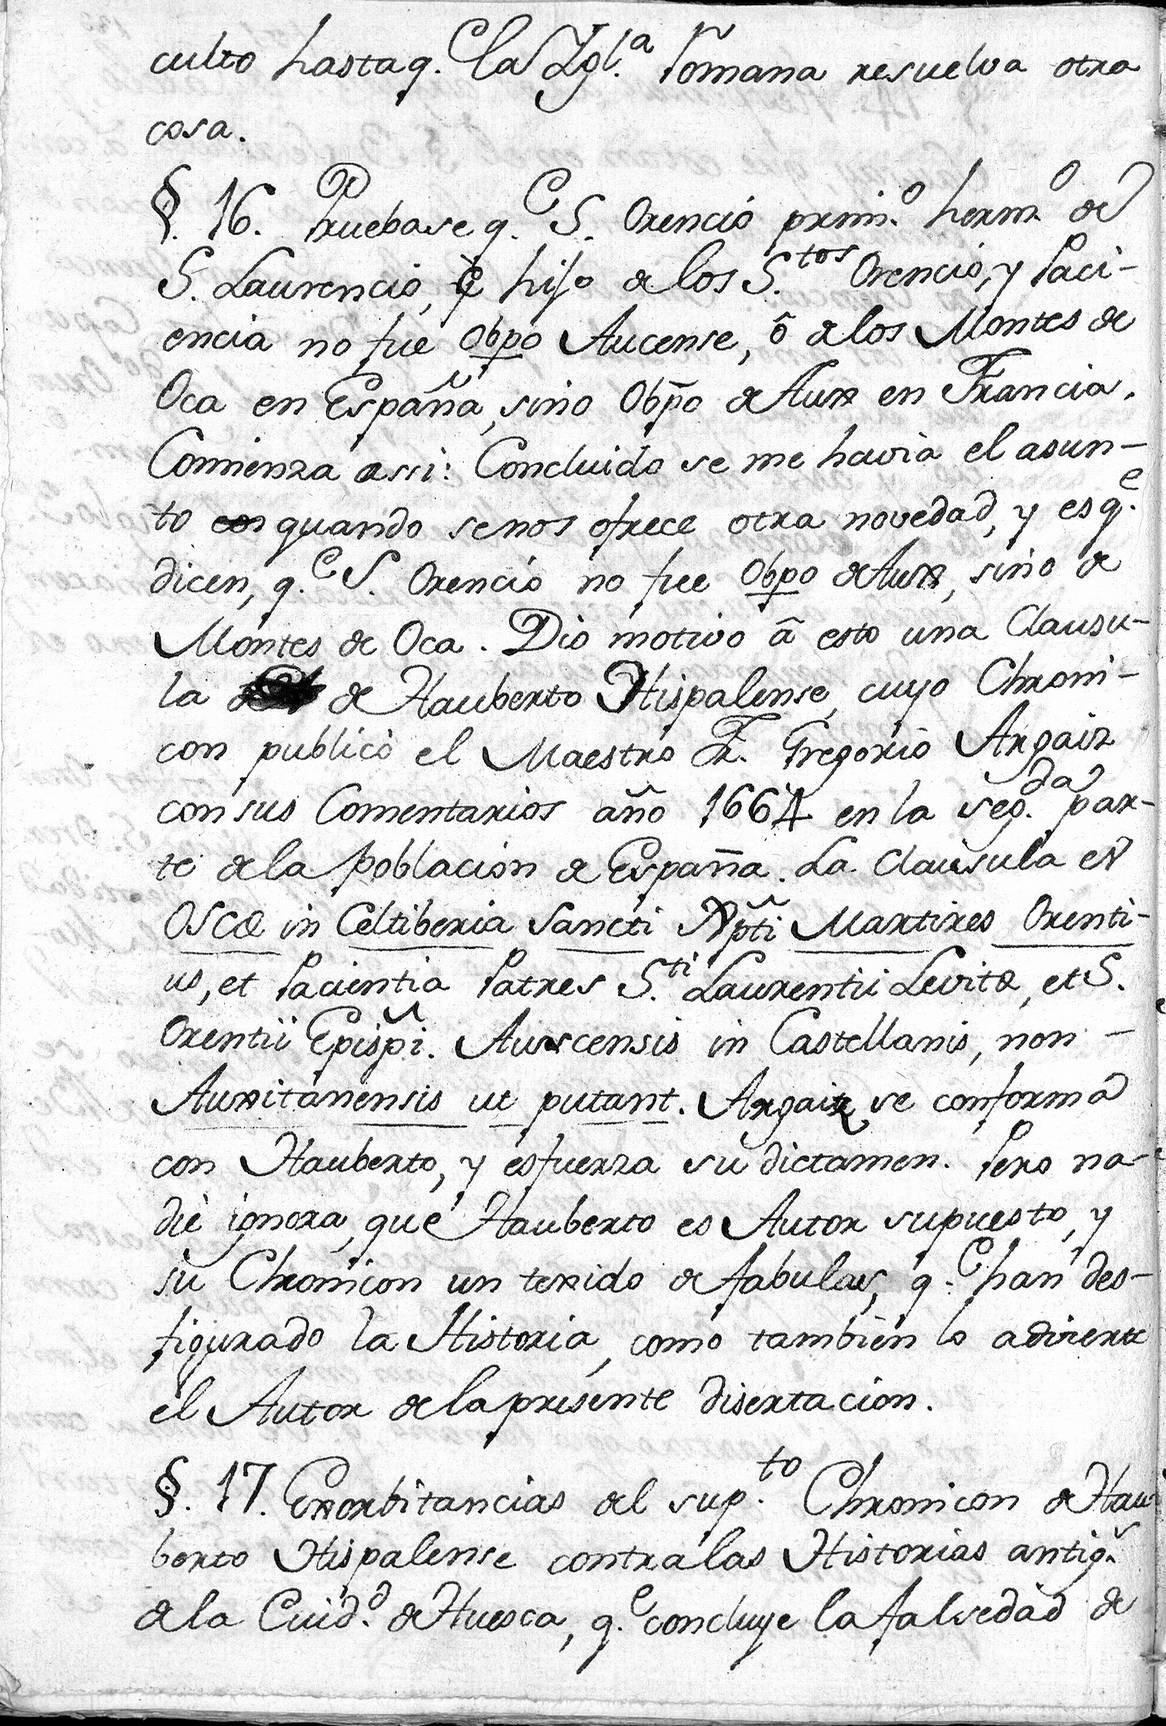 culto hasta q.e la Igl.a Romana resuelva otra
cosa.
§. 16. Pruebase q.e S. Orencio prim.o herm.o de
S. Laurencio, è hijo de los S.tos Orencio, y Paci-
encia no fue Obpo Aucense, ô de los Montes de
Oca en España, sino Obp̃o de Aux en Francia.
Comienza assi: Concluido se me havia el asun-
to quando se nos ofrece otra novedad, y es q.e
dicen, q.e S. Orencio no fue Obpo de Aux, sino de
Montes de Oca. Dio motivo â esto una Clausu-
la de Hauberto Hispalense, cuyo Chroni-
con publicò el Maestro Fr. Gregorio Argaiz
con sus Comentarios año 1664 en la seg.da par-
te de la Poblacion de España. La Clausula es
Oscæ in Celtiberia Sancti Xp̃ti Martires Orenti-
us, et Pacientia Patres S.ti Laurentii Levitæ, et S.
Orentii Episp̃i. Auscensis in Castellanis, non
Auxitanensis ut putant. Argaiz se conforma
con Hauberto, y esfuerza su dictamen. Pero na-
die ignora, que Hauberto es Autor supuesto, y
su Chronicon un texido de fabulas, q.e han des-
figurado la Historia, como tambien lo advierte
el Autor de la presente disertacion.
§. 17. Exorbitancias del sup.to Chronicon de Hau-
berto Hispalense contra las Historias antig.s
de la Cuid.d de Huesca, q.e concluye la falsedad de